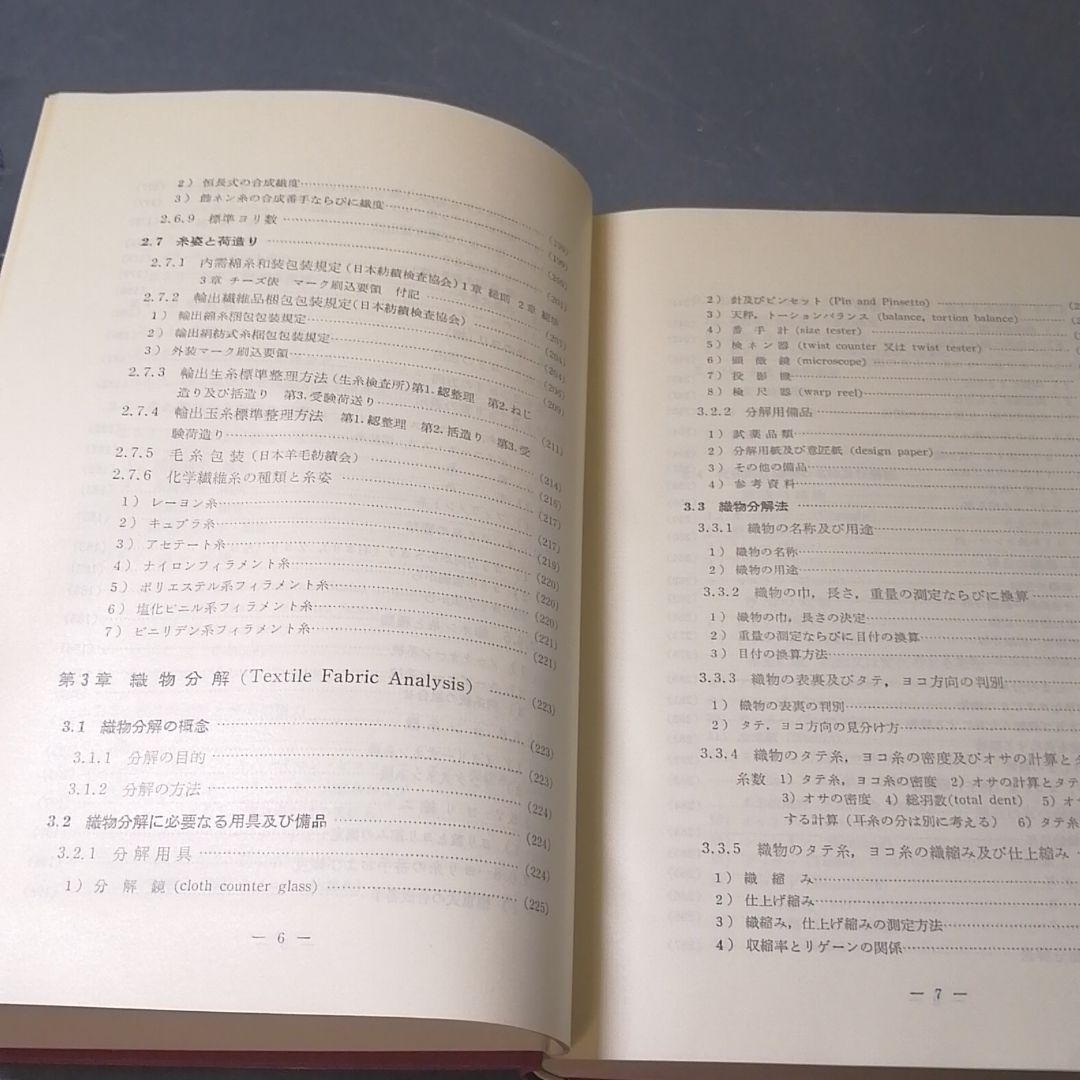 2) 恒長式の合成繊度
3) 飾ネン糸の合成番手ならびに繊度
2.6.9 標準ヨリ数 (199)
2.7 糸姿と荷造り (199)
2.7.1 内需綿糸和装包装規定(日本紡績検査協会)1章 総則 2章
3章 チーズ俵 マーク刷込要領 付記 (201)
2.7.2 輸出繊維品梱包包装規定(日本紡績検査協会)
1) 輸出綿糸梱包包装規定 (203)
2) 輸出絹紡式糸梱包包装規定 (204)
3) 外装マーク刷込要領 (204)
2.7.3 輸出生糸標準整理方法(生糸検査所)第1.認整理 第2.ねじ (206)
造り及び括造り 第3.受験荷送り (209)
2.7.4 輸出玉糸標準整理方法 第1.認整理 第2.括造り 第3.受
験荷造り (211)
2.7.5 毛糸包装(日本羊毛紡績会) (214)
2.7.6 化学繊維糸の種類と糸姿 (216)
1) レーヨン糸 (217)
2) キュプラ糸 (217)
3) アセテート糸 (219)
4) ナイロンフィラメント糸 (220)
5) ポリエステル系フィラメント糸 (220)
6) 塩化ビニル系フィラメント糸 (220)
7) ビニリデン系フィラメント糸 (221)
(221)
第3章 織物分解(Textile Fabric Analysis) (223)
3.1 織物分解の概念 (223)
3.1.1 分解の目的 (223)
3.1.2 分解の方法 (224)
3.2 織物分解に必要なる用具及び備品 (224)
3.2.1 分解用具 (224)
1) 分解鏡(cloth counter glass) (225)
— 6 —
2) 針及びピンセット(Pin and Pinsetto)
3) 天秤,トーションバランス(balance, tortion balance)
4) 番手計(size tester)
5) 検ネン器(twist counter 又は twist tester)
6) 顕微鏡(microscope)
7) 投影機
8) 検尺器(warp reel)
3.2.2 分解用備品
1) 試薬品類
2) 分解用紙及び意匠紙(design paper)
3) その他の備品
4) 参考資料
3.3 織物分解法
3.3.1 織物の名称及び用途
1) 織物の名称
2) 織物の用途
3.3.2 織物の巾,長さ,重量の測定ならびに換算
1) 織物の巾,長さの決定
2) 重量の測定ならびに目付の換算
3) 目付の換算方法
3.3.3 織物の表裏及びタテ,ヨコ方向の判別
1) 織物の表裏の判別
2) タテ,ヨコ方向の見分け方
3.3.4 織物のタテ糸,ヨコ糸の密度及びオサの計算と
糸数 1)タテ糸,ヨコ糸の密度 2)オサの計算とタテ
3)オサの密度 4)総羽数(total dent) 5)オ
する計算(耳糸の分は別に考える) 6)タテ糸
3.3.5 織物のタテ糸,ヨコ糸の織縮み及び仕上縮み
1) 織縮み
2) 仕上げ縮み
3) 織縮み,仕上げ縮みの測定方法
4) 収縮率とリゲーンの関係
— 7 —